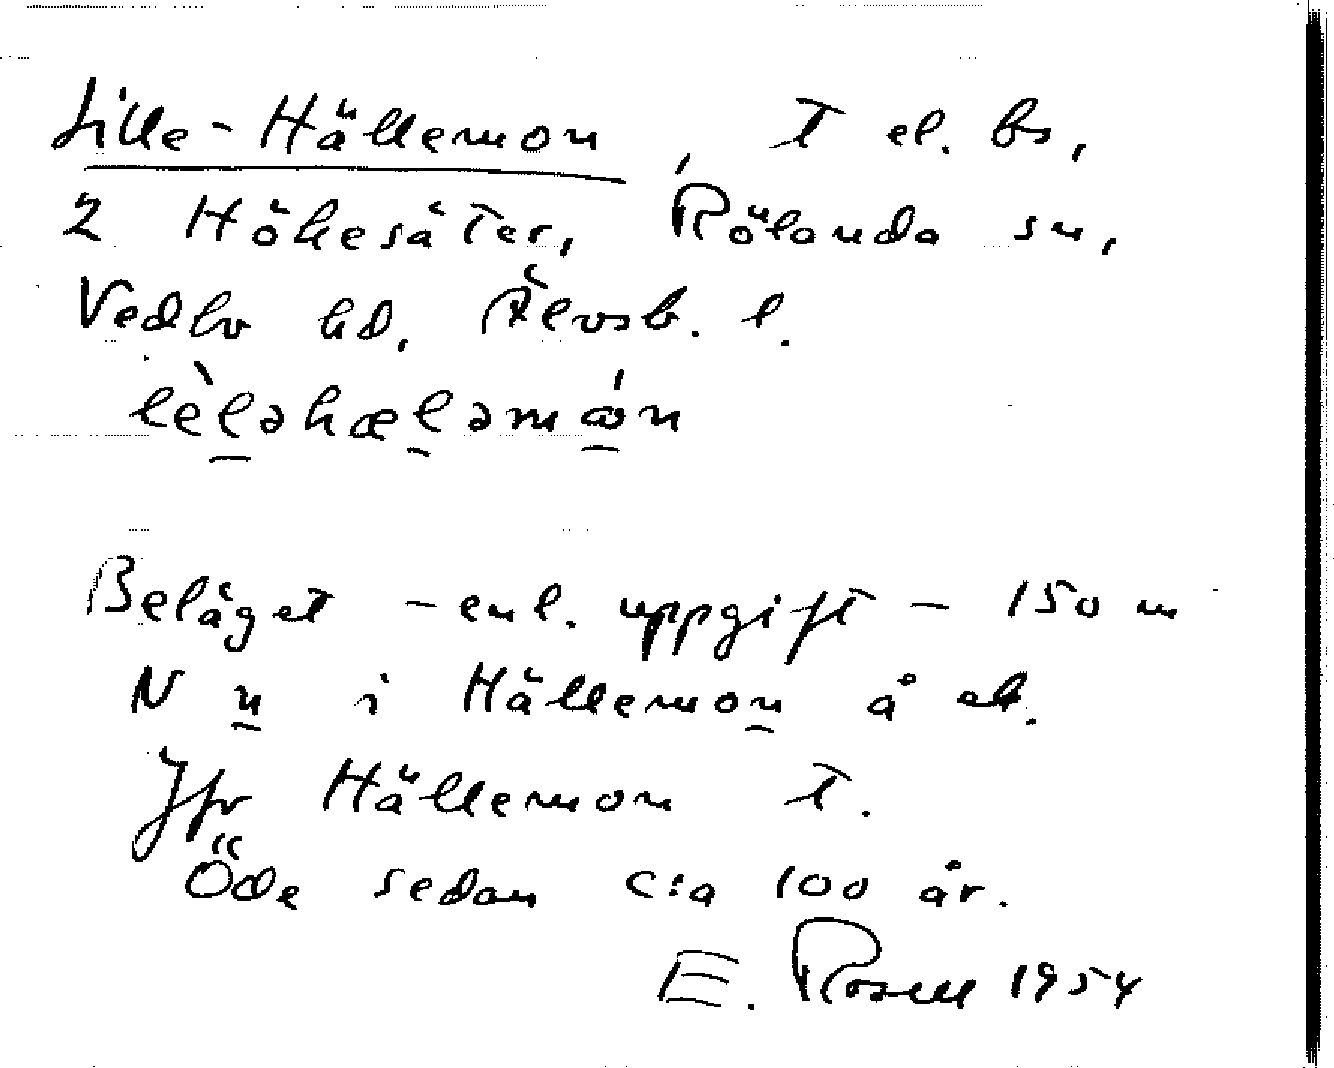 Lille-Hällemon, T el. bs,
2 Hökesäter, Rölanda sn,
Vedbo hd, Älvsb. l.
Beläget - enl. uppgift - 150 m
N n i Hällemon å ek.
Jfr Hällemon T.
Öde sedan c:a 100 år.
E. Rosell 1954